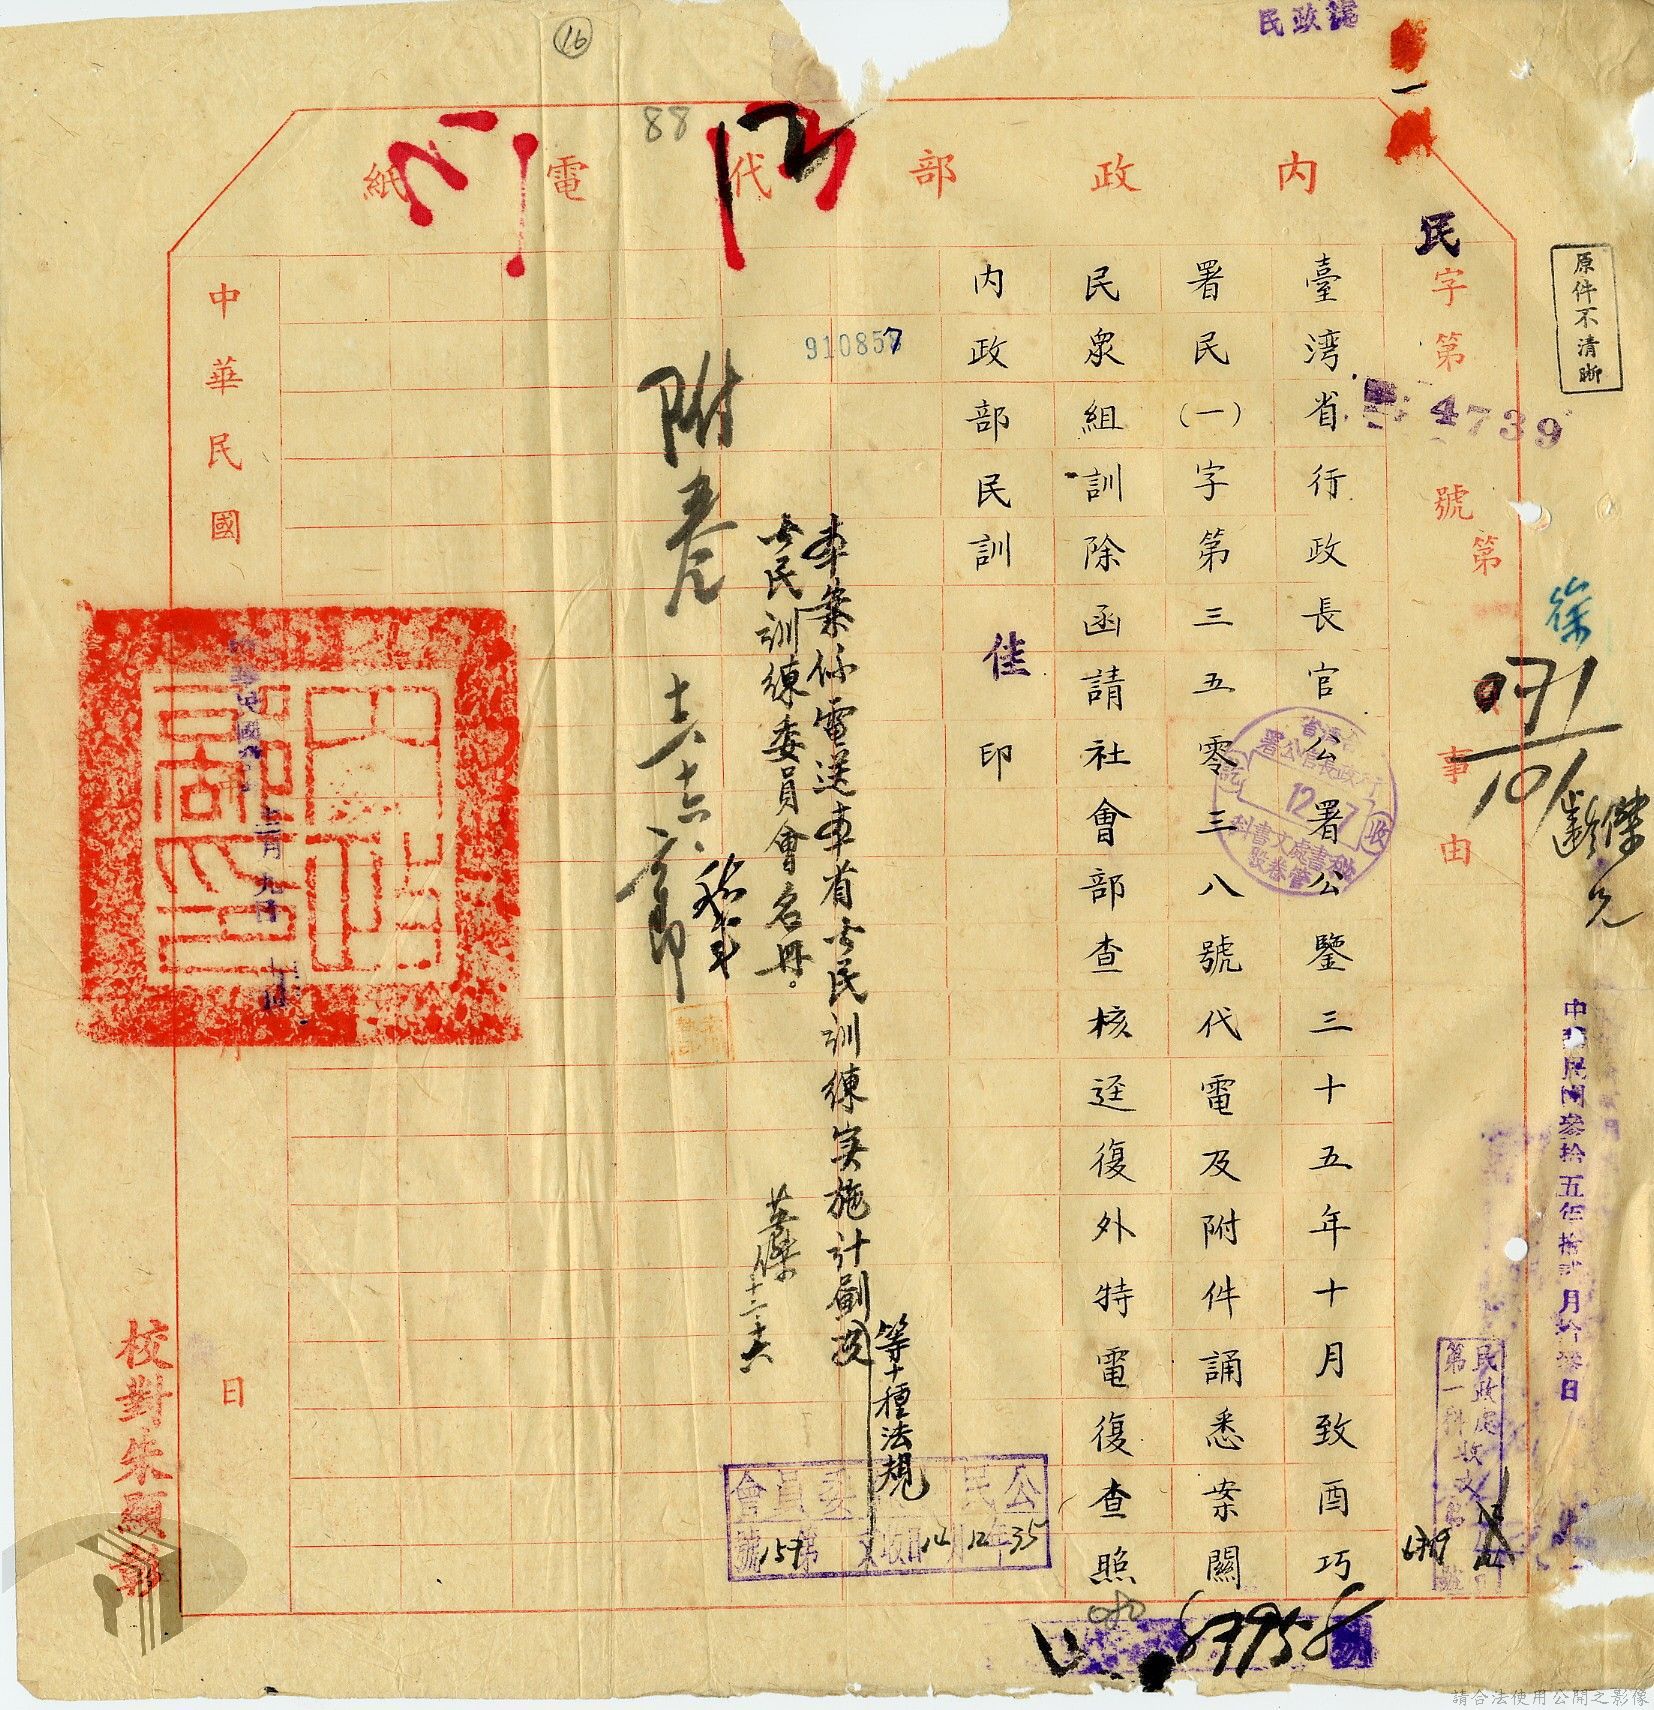 民政處
16
88
內政部代電紙
民字第4739號
事由
原件不清晰
徐
臺湾省行政長官公署公鑒三十五年十月致酉巧
署民(一)字第三五零三八號代電及附件誦悉案關
民衆組訓除函請社會部查核逕復外特電復查照
內政部民訓佳印
910857
本案係電送本省公民訓練实施計劃
等十種法規
公民訓練委員會名冊。
附卷
中華民國
十二月九日
日
校對朱顯彰
中華民國叁拾五年拾弍月拾叁日
行政長官公署
12 7
秘書處文書科
收
民政處
第一科收文
公民訓練委員會
35年12月14日收文第159號
87958
請合法使用公開之影像